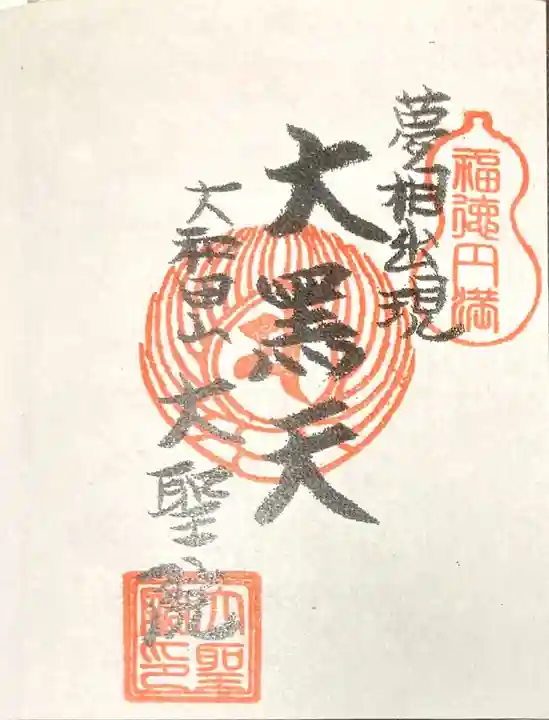 福徳円満
夢相出現
大黑天
大和田山
大聖院
大聖院印